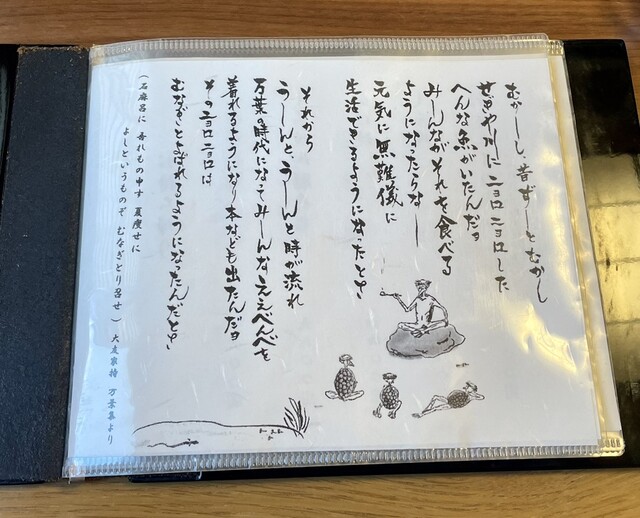 むかーしし 昔ずーとむかし
せきや川に ニョロニョロした
へんな魚がいたんだョ
みーんながそれを食べる
ようになったらなー
元気に無難儀に
生活できるようになったとさ
それから
うーんと、うーんと時が流れ
万葉の時代になってみーんなええべべを
着れるようになり本なども出たんだョ
そのニョロニョロは
むなぎとよばれるようになったんだとさ
(石麻呂に 吾れもの申す 夏痩せに
よしというものぞ むなぎとり召せ) 大友家持 万葉集より